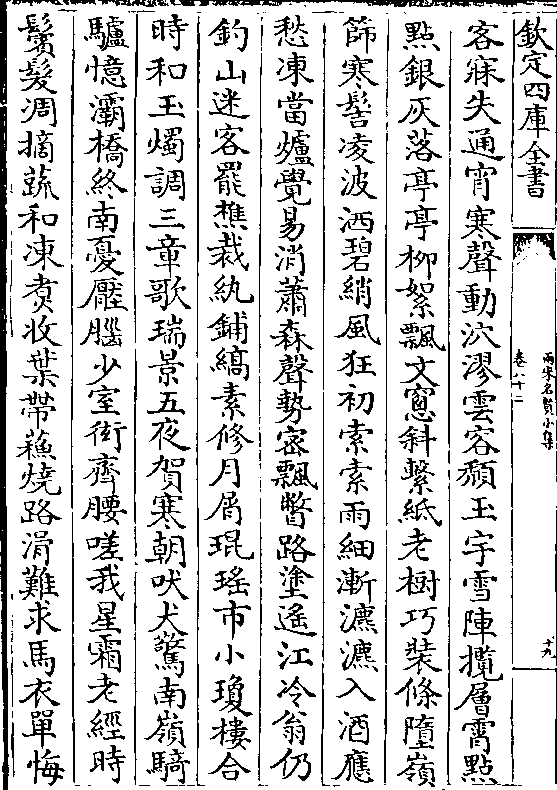 欽定四庫全書
兩宋名賢小集
卷八十二
十九
客寐失通宵寒聲動泬漻雲容頹玉宇雪陣攪層霄點
點銀灰落亭亭柳絮飄文窻斜繫紙老樹巧裝條墮嶺
篩寒髻凌波洒碧綃風狂初索索雨細漸瀌瀌入酒應
愁凍當爐覺易消蕭森聲勢宻飄瞥路塗遙江冷翁仍
釣山迷客罷樵裁紈鋪縞素修月屑琨瑤市小瓊樓合
時和玉燭調三章歌瑞景五夜賀寒朝吠犬驚南嶺騎
驢憶灞橋終南憂壓腦少室衒齊腰嗟我星霜老經時
鬢髮凋摘蔬和凍煑收葉帶蘓燒路滑難求馬衣單悔